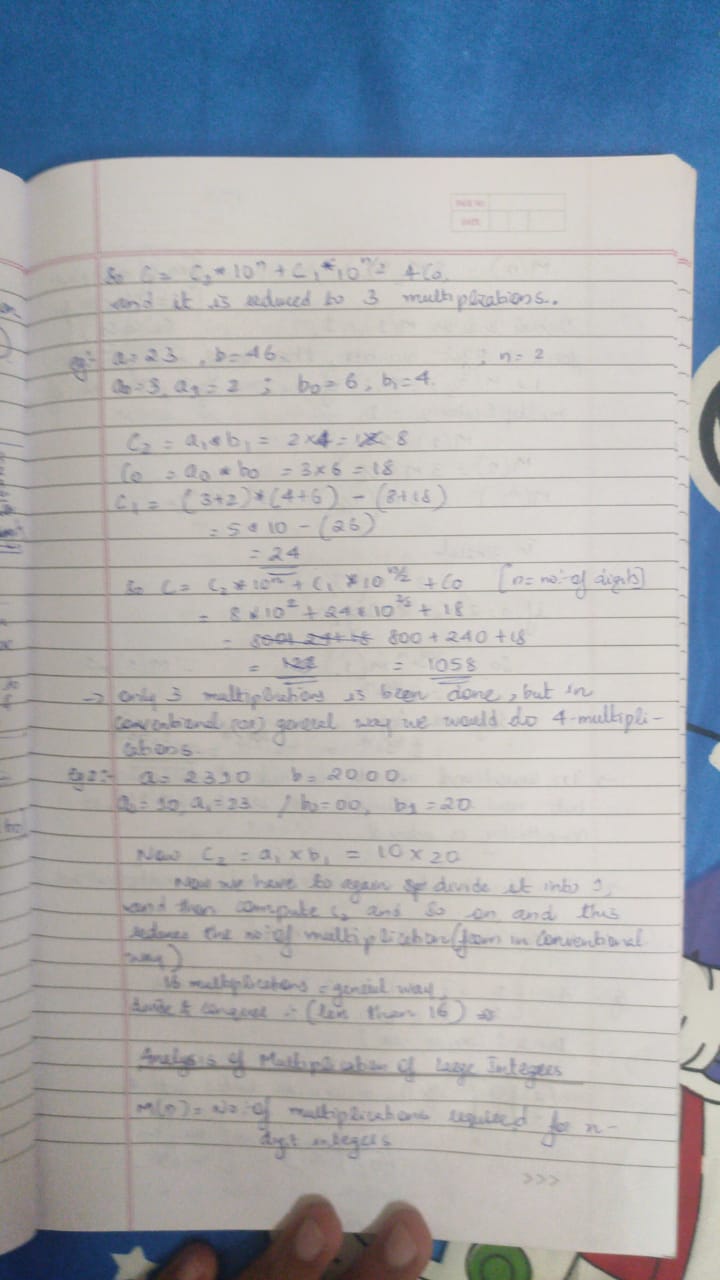 PAGE No.
DATE
So C = C₂ * 10ⁿ + C₁ * 10^n/2 + C₀.
and it is reduced to 3 multiplications.
eg:- a=23 , b=46 ; n=2
a₀=3, a₁=2 ; b₀=6, b₁=4.
C₂ = a₁*b₁ = 2×4 = 8
C₀ = a₀ * b₀ = 3×6 = 18
C₁ = (3+2)*(4+6) - (8+18)
= 5 * 10 - (26)
= 24
So C = C₂*10ⁿ + C₁ *10^n/2 + C₀ [n=no:-of digits]
= 8*10² + 24*10^2/2 + 18
= 800 + 240 + 18
= = 1058
→ only 3 multiplications is been done, but in
conventional (or) general way we would do 4-multipli-
cations.
eg2:- a= 2310 b= 2000.
a₀=10, a₁=23 / b₀=00, b₁=20
Now C₂ = a₁ × b₁ = 10 × 20
Now we have to again divide it into
and then compute C₂ and so on and this
reduces the no:-of multiplication (from in conventional
way)
16 multiplications = general way,
divide & conquer :- (less than 16)
Analysis of Multiplication of large Integers
M(n) = No:-of multiplications required for n-
digit integers
>>>